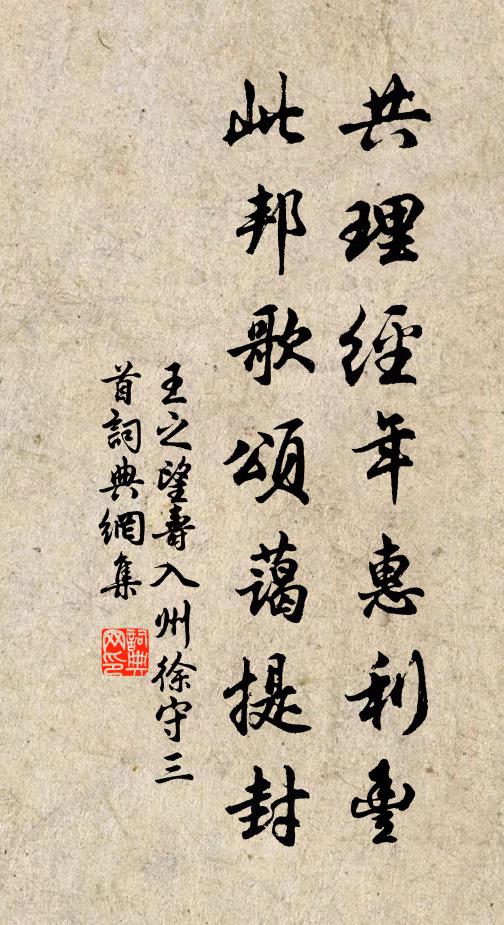 共理經年惠利豐
此邦歌頌藹提封
王之望壽入州徐守三
首詞典網集
詞典网印